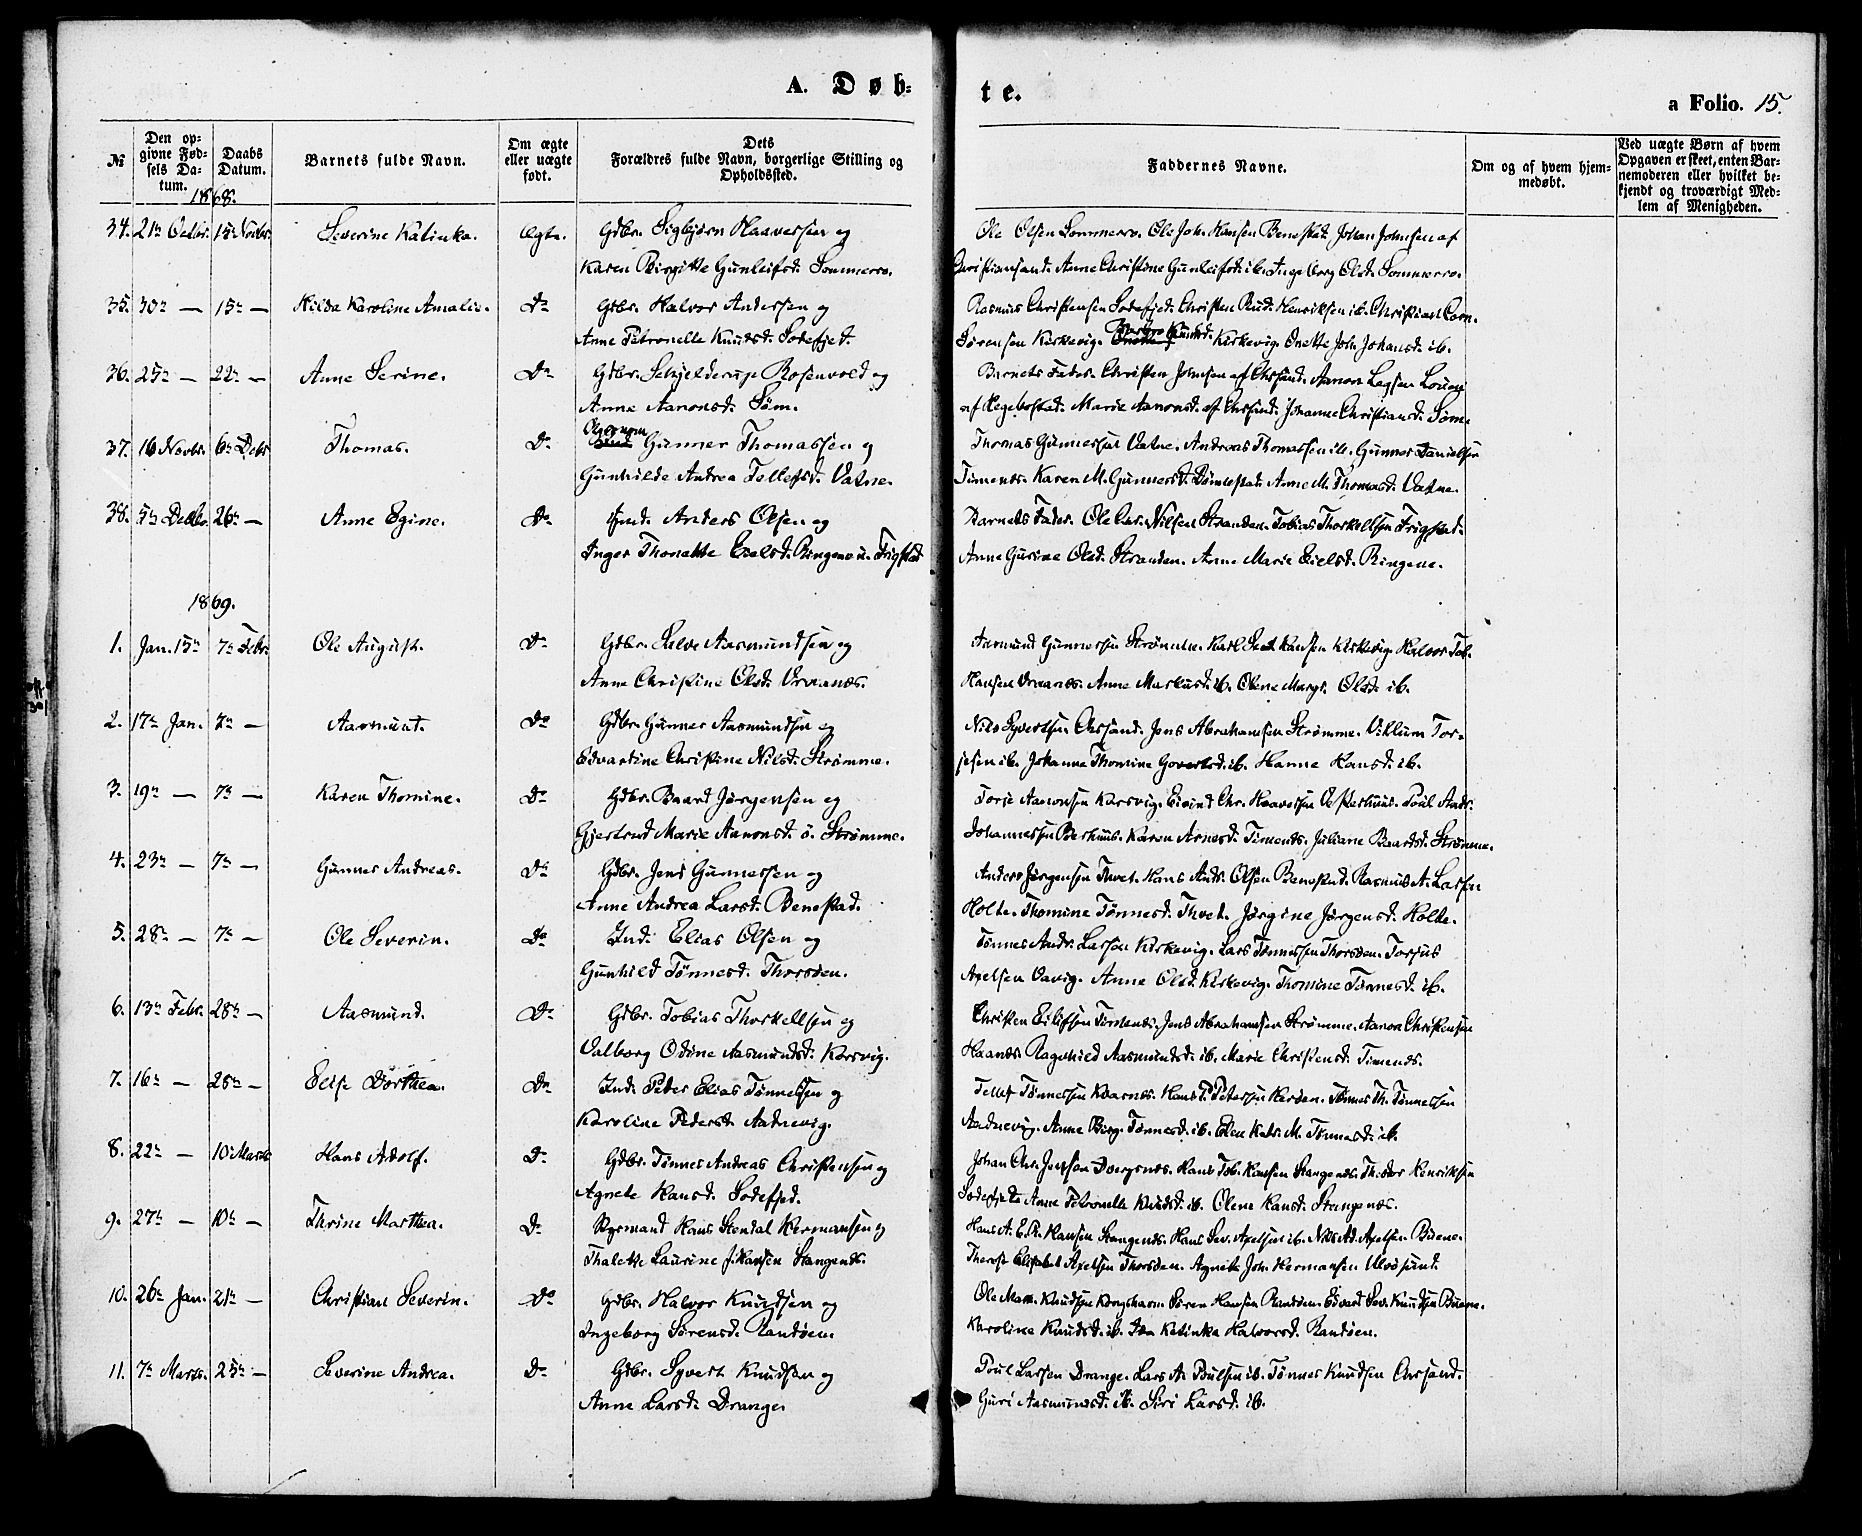 A. Døb-
te.
a Folio. 15.
№
Den op-
givne Fød-
sels Da-
tum.
Daabs
Datum.
Barnets fulde Navn.
Om ægte
eller uægte
født.
Dets
Forældres fulde Navn, borgerlige Stilling og
Opholdssted.
Faddernes Navne.
Om og af hvem hjem-
medøbt.
Ved uægte Børn af hvem
Opgaven er skeet, enten Bar-
nemoderen eller hvilket be-
kjendt og troværdigt Med-
lem af Menigheden.
1868.
34. 21de Octbr. 15de Novbr. Severine Kalinka. Ægte. Gdbr. Sigbjørn Haavorsen og
Karen Birgitte Gunleifsd. Sommerro.
Ole Olsen Sommerro. Ole Joh. Hansen Benestad. Johan Johnsen af
Christiansand. Anne Christine Gunleifsd. ib. Ingeborg Olsd. Sommerro.
35. 30te — 15de — Hilda Karoline Amalie. Do Gdbr. Halvor Andersen og
Anne Petronelle Knudsd. Sodefjed.
Rasmus Christensen Sodefjed. Christen Rud. Henriksen ib. Christian Corn.
Sørensen Kirkevig. Barbro Knudsd. Kirkevig. Onette Joh. Johansd. ib.
36. 25de — 22de — Anne Serine. Do Gdbr. Schjelderup Rosenvold og
Anne Aanonsd. Søm.
Barnets Fader. Christen Johnsen af Chrsand. Aanon
af Hegebostad. Marie Aanonsd. af Chrsand. Johanne Christiansd. Søm.
37. 16 Novbr. 6te Decbr Thomas. Do Gunner Thomassen og
Gunhilde Andrea Tellefsd. Vatne.
Thomas Gunnersen Vatne. Andreas Thomassen ib. Gunner Danielsen
Timenes. Karen M. Gunnersd. Dømmestad. Anne M. Thomasd. Vatne.
38. 5te Decbr. 26de — Anne Egine. Do Ind. Anders Olsen og
Inger Thonette Eielsd. Ringene u. Frigstad
Barnets Fader. Ole Chr. Nilsen Stranden. Tobias Thorkellsen Frigstad.
Anne Gurine Olsd. Stranden. Anne Marie Eielsd. Ringene.
1869.
1. Jan. 15de 7de Febr. Ole August. Do Gdbr. Salve Aasmundsen og
Anne Christine Olsd. Vraanes.
Aasmund Gunnersen Strømme. Karl Hansen Kirkevig. Halvor Tob.
Hansen Vraanes. Anne Markusd. ib. Olene Margr. Olsd. ib.
2. 17de Jan. 7de — Aasmund. Do Gdbr. Gunner Aasmundsen og
Edvardine Christine Nilsd. Strømme.
Nils Syvertsen Chrsand. Jens Abrahamsen Strømme. Villum Tor-
jesen ib. Johanne Thomine Govertsd. ib. Hanne Hansd. ib.
3. 19de — 7de — Karen Thomine. Do Gdbr. Baard Jørgensen og
Gjertrud Marie Aanonsd. ø. Strømme.
Torje Aanonsen Korsvig. Eivind Chr. Haavorsen Østerhuus. Poul Andr.
Johannessen Østerhuus. Karen Arnesd. Timenes. Juliane Baardsd. Strømme.
4. 23de — 7de — Gunner Andreas. Do Gdbr. Jens Gunnersen og
Anne Andrea Larsd. Benestad.
Anders Jørgensen Tvet. Hans Andr. Olsen Benestad. Rasmus A. Larsen
Holte. Thomine Tønnesd. Thvet. Jørgine Jørgensd. Holte.
5. 28de — 7de — Ole Severin. Do Ind. Elias Olsen og
Gunhild Tønnesd. Thorsøen.
Tønnes Andr. Larsen Kirkevig. Lars Tønnessen Thorsøen. Torjus
Axelsen Vavig. Anne Olsd. Kirkevig. Thomine Tønnesd. ib.
6. 13de Febr. 28de — Aasmund. Do Gdbr. Tobias Thorkellsen og
Valborg Odine Aasmundsd. Korsvig.
Christen Eilifsen Timenes. Jens Abrahamsen Strømme. Aanon Christensen
Haanes. Ragnhild Aasmundsd. ib. Marie Christensd. Timenes.
7. 16de — 28de — Else Dorthea. Do Ind. Peder Elias Tønnessen og
Karoline Pedersd. Aadnevig.
Tellef Tønnessen Kvarnes. Hans P. Petersen Herøen. Tønnes Th. Tønnessen
Aadnevig. Anne Birg. Tønnesd. ib. Ellen Katr. M. Tønnesd. ib.
8. 22de — 10 Marts Hans Adolf. Do Gdbr. Tønnes Andreas Christensen og
Agnete Hansd. Sodefjed.
Johan Chr. Jensen Dvergsnes. Hans Tob. Hansen Stangenes. Theodor Henriksen
Sodefjed. Anne Petronelle Knudsd. ib. Olene Hansd. Stangenes.
9. 27de — 10de — Thrine Marthea. Do Styrmand Hans Stendal Hermansen og
Thalette Laurine J. Hansen Stangenes.
Hans A. E. R. Hansen Stangenes. Hans Sev. Axelsen ib. Nils Ad. Axelsen Buene.
Therese Elisabet Axelsen Thorsøen. Agnete Joh. Hermansen Ulvøsund.
10. 26de Jan. 21de — Christian Severin. Do Gdbr. Halvor Knudsen og
Ingeborg Sørensd. Randøen.
Ole Mar. Knudsen Kongshavn. Søren Hansen Randøen. Edvard Sev. Knudsen Buene.
Karoline Knudsd. ib. Ida Kalinka Halvorsd. Randøen.
11. 7de Marts. 25de — Severine Andrea. Do Gdbr. Syvert Knudsen og
Anne Larsd. Drange.
Poul Larsen Drange. Lars A. Poulsen ib. Tønnes Knudsen Chrsand.
Guri Aasmundsd. ib. Siri Larsd. ib.